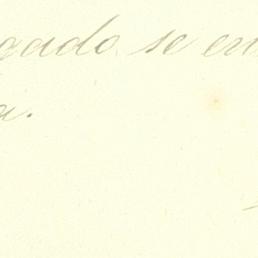 gado se en
a.